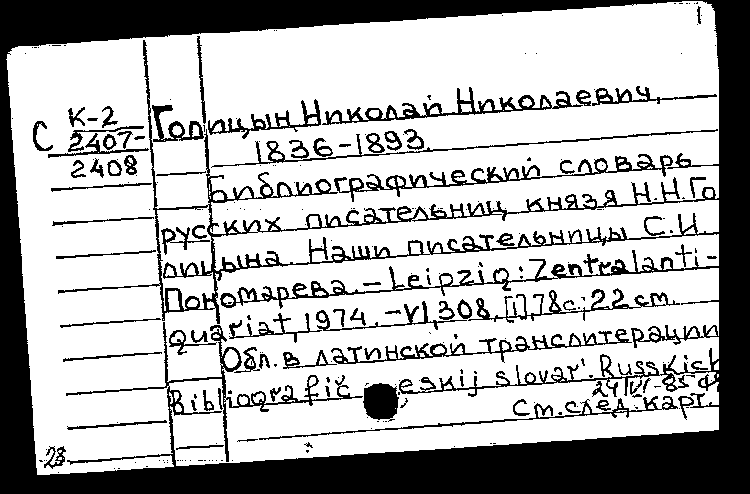 1
К-2
С 2407-
2408
Голицын, Николай Николаевич,
1836-1893.
Библиографический словарь
русских писательниц князя Н.Н.Го
лицына. Наши писательницы С.И.
Пономарева. - Leipzig: Zentralanti-
quariat, 1974. - VI, 308, [1], 78с.; 22 cm.
Обл. в латинской транслитерации
Bibliografič eskij slovar'. Russkich
24/VI-85
См. след. карт.
28.